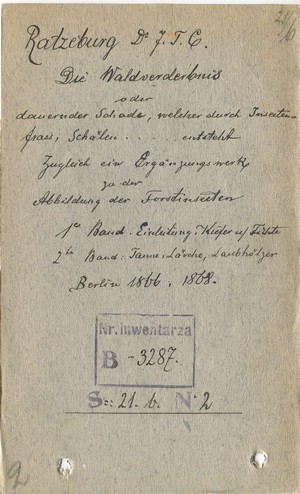 Ratzeburg Dr J. T. C.
Die Waldverderbnis
oder
dauernder Schade, welcher durch Insecten-
frass, Schälen . . . . . entsteht
Zugleich ein Ergänzungswerk
zu der
Abbildung der Forstinsecten
1te Band: Einleitung, Kiefer u/ Fichte
2te Band: Tanne, Lärche, Laubhölzer
Berlin 1866, 1868.
Nr. inwentarza
B -3287.
S:: 21. b. N 2
2